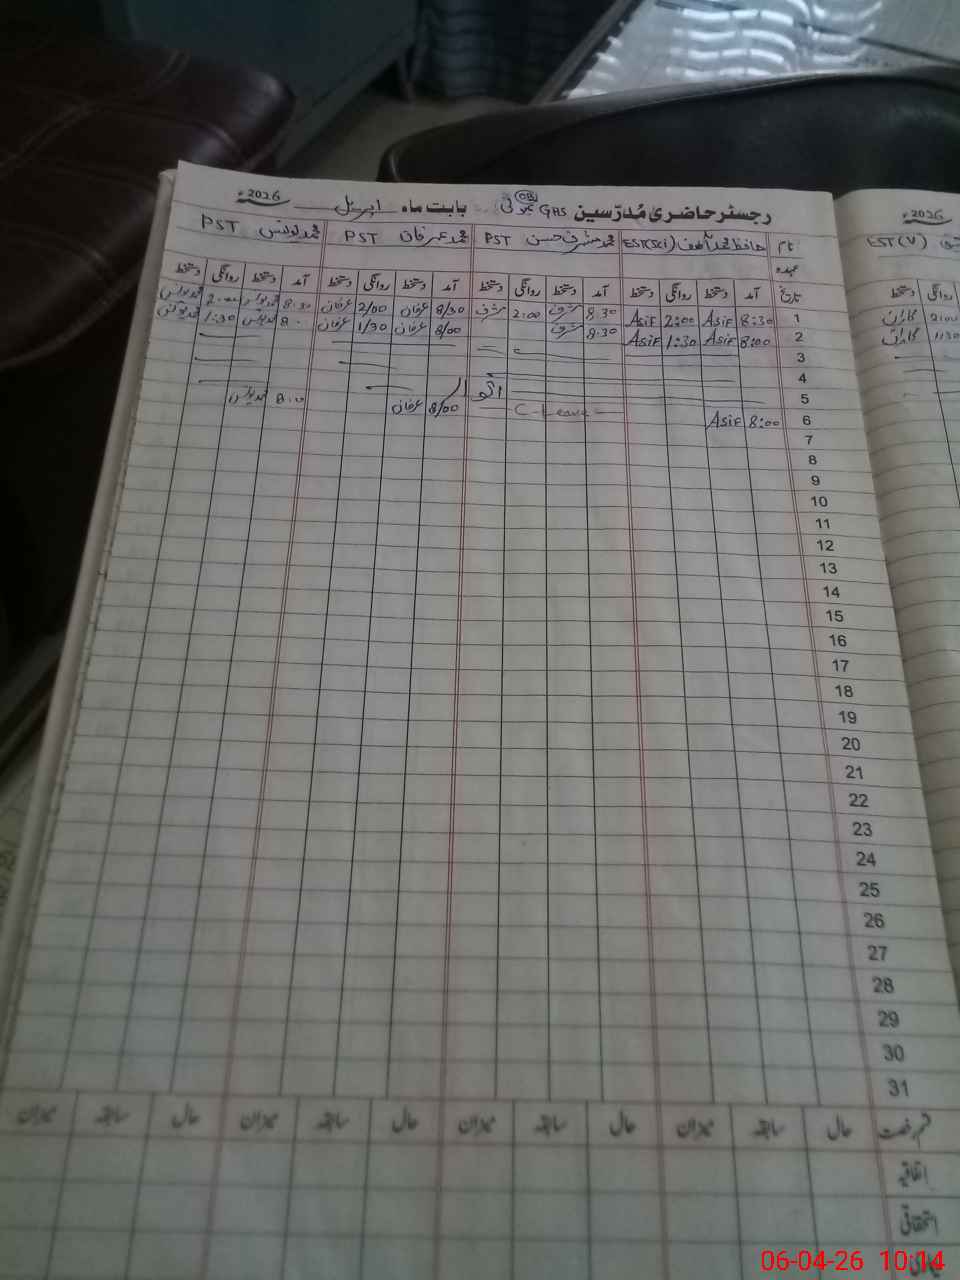 رجسٹر حاضری مُدرّسین GHS بابت ماہ اپریل 2026ء
2026ء
نام حافظ محمد آصف EST(Sci) محمد مشرف حسن PST محمد عرفان PST محمد یونس PST
EST(V)
عہدہ
تاریخ آمد دستخط روانگی دستخط آمد دستخط روانگی دستخط آمد دستخط روانگی دستخط آمد دستخط روانگی دستخط
روانگی دستخط
1 8:30 Asif 2:00 Asif 8.30 مشرف 2:00 مشرف 8/30 عرفان 2/00 عرفان 8.30 محمد یونس 2:00 محمد یونس
2:00
2 8:00 Asif 1:30 Asif 8.30 مشرف 8/00 عرفان 1/30 عرفان 8. محمد یونس 1:30 محمد یونس
1:30
3
4
5 اتوار
6 8:00 Asif C-Leave 8/00 عرفان 8.0 محمد یونس
7
8
9
10
11
12
13
14
15
16
17
18
19
20
21
22
23
24
25
26
27
28
29
30
31
قسم رخصت حال سابقہ میزان حال سابقہ میزان حال سابقہ میزان حال سابقہ میزان
اتفاقیہ
استحقاقی
بیماری
06-04-26 10:14